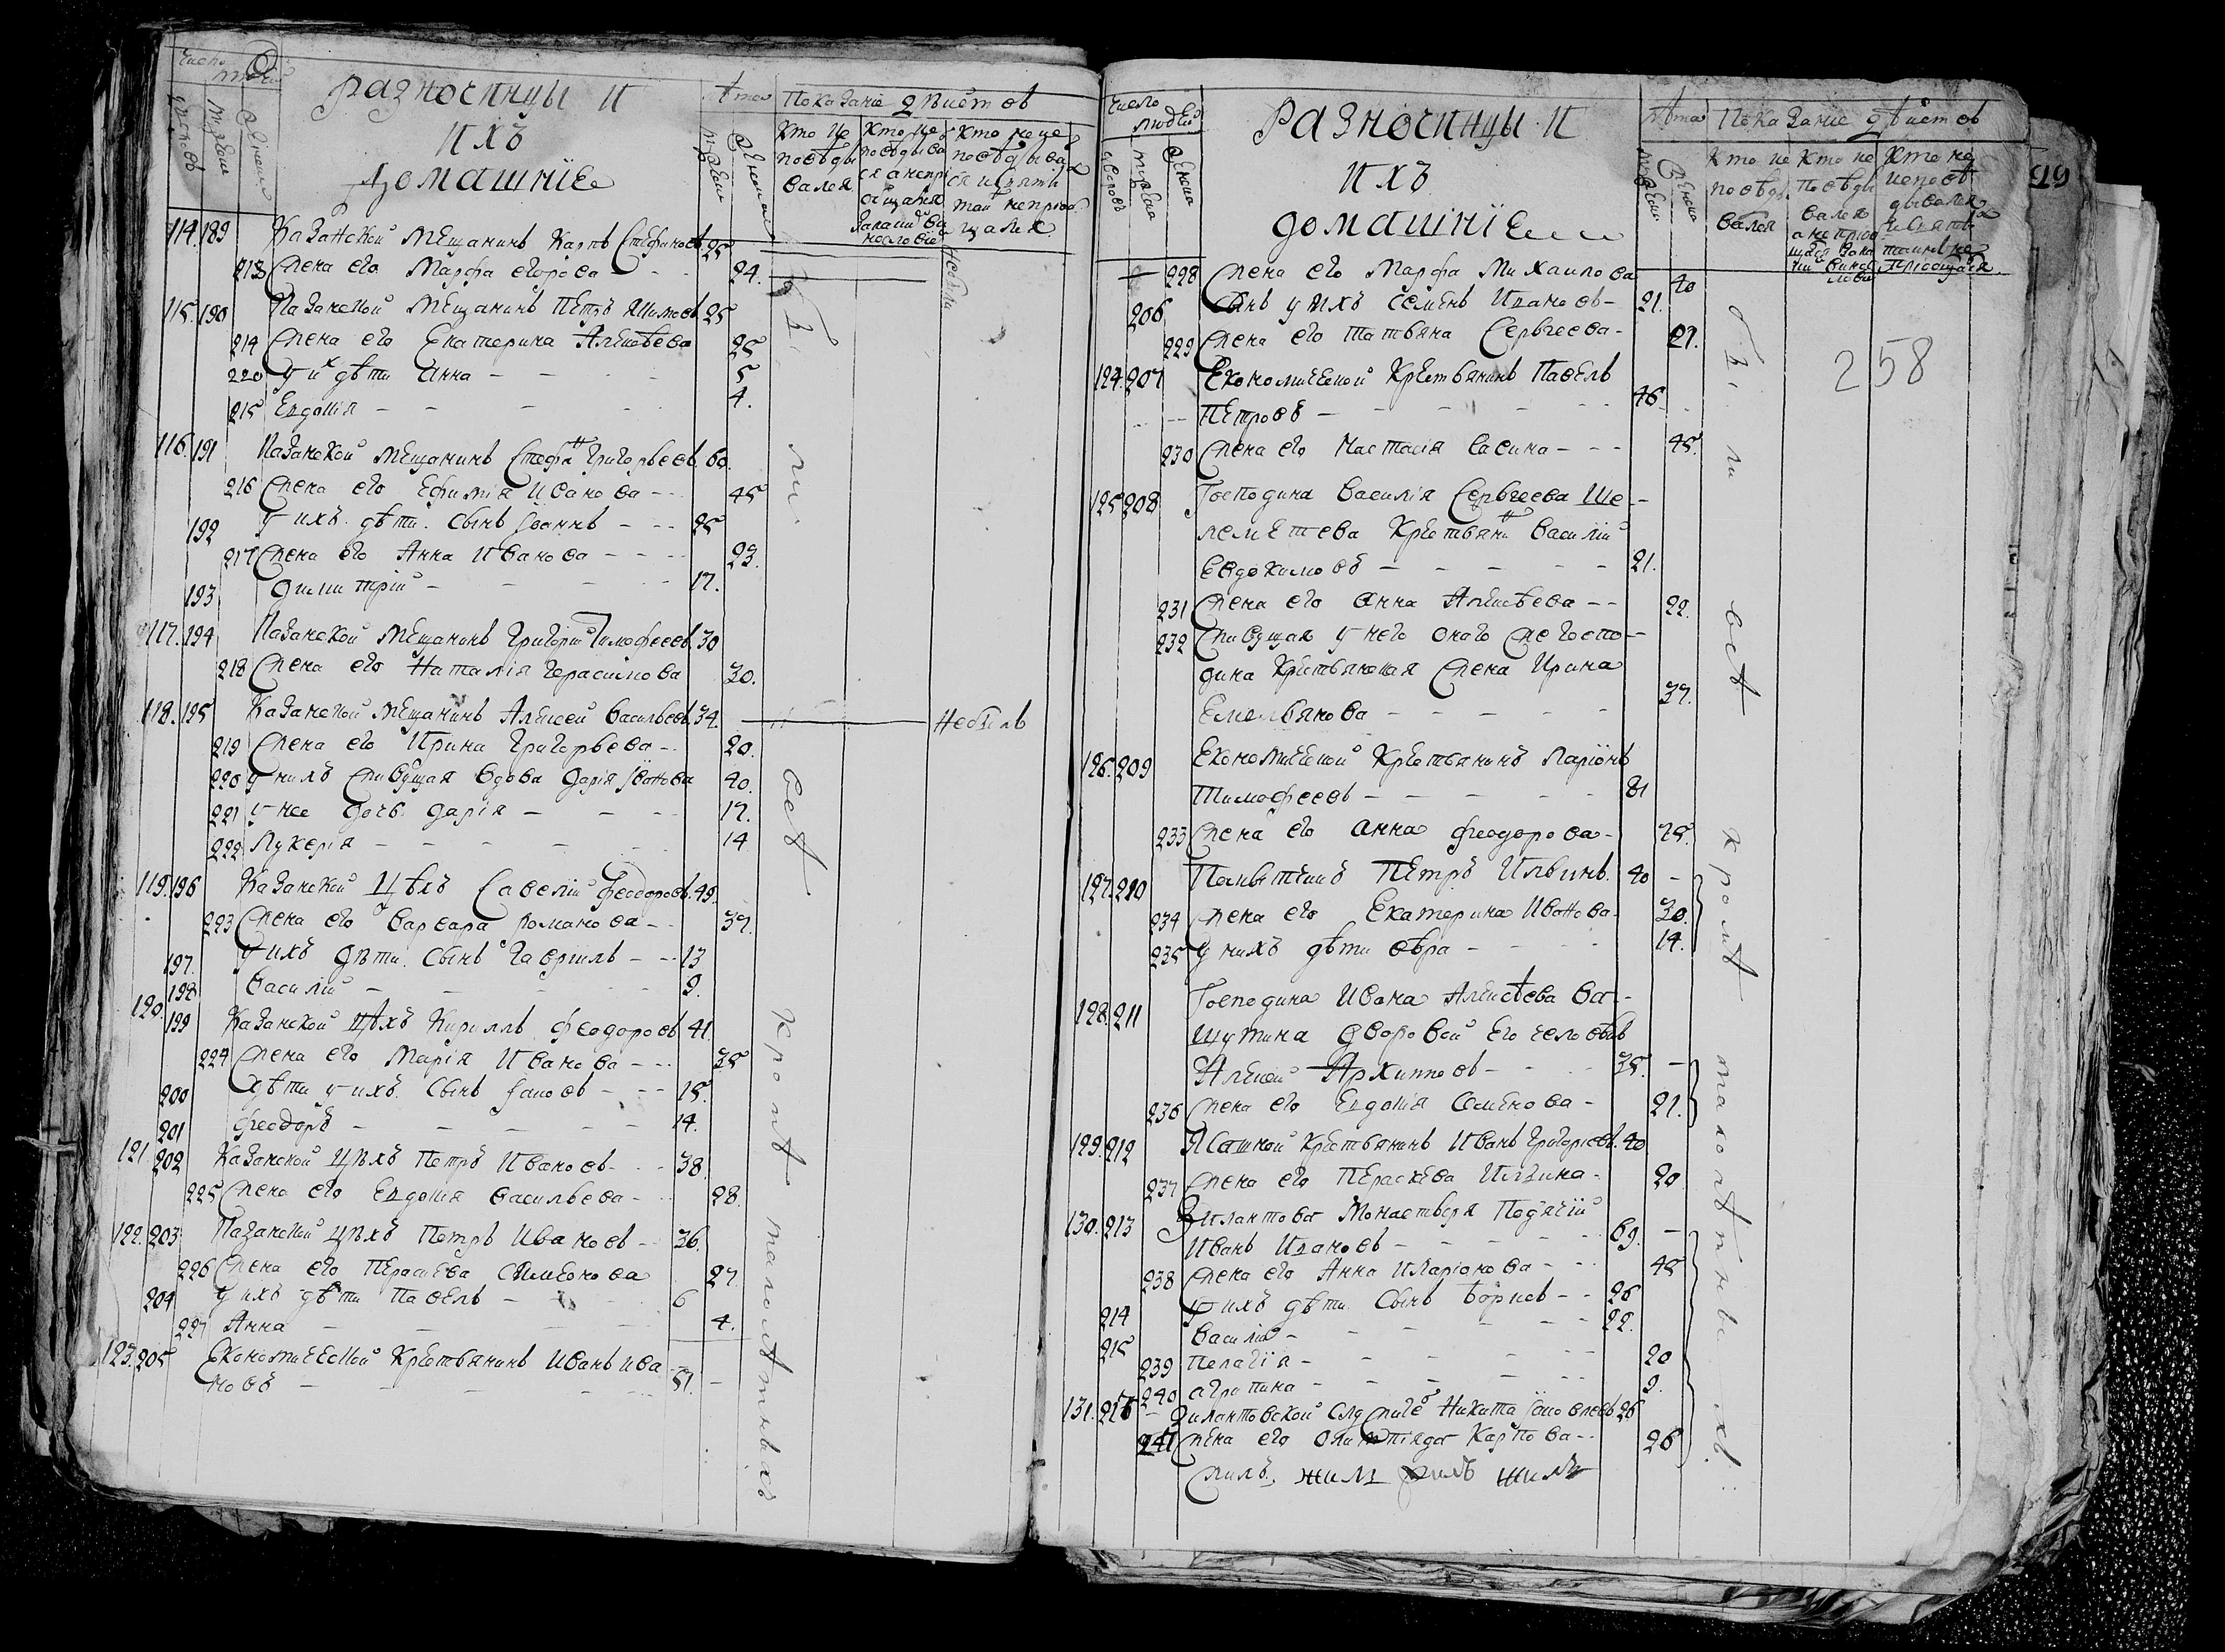 число людей
дворовъ
мужска
женска
разночинцы и
ихъ
домашніе
лета
мужска
женска
показаніе действъ
кто исповедывался
кто исповедывался а не пріобщался за каким виносло віем
кто не исповедывался и святы таин не пріобщался
114. 189 Казанской мещанинъ Карпъ Стефановъ 25
213 жена его Марфа Егорова - - 24. не была
115. 190 Казанской мещанинъ Петръ Якимовъ 25
214 жена его Екатерина Алексеева 25
220 у их дети Анна - - - 5
215 Евдокія - - - 4.
116. 191 Казанской мещанинъ Стефан Григорьевъ 60.
216 жена его Ефимія Иванова - - 45
192 у ихъ дети. сынъ Іоаннъ - - - 25
217 жена его Анна Иванова - - - 23.
193 Димитрій - - - 17.
117. 194 Казанской мещанинъ Григорій Тимофеевъ 30
218 жена его Наталія Герасимова 30.
118. 195 Казанской мещанинъ Алексей Васильевъ 34. небылъ
219 жена его Ирина Григорьева - - 20.
220 у нихъ живущая вдова Дарія Іванова 40.
221 у нее дочь Дарія - - - 17.
222 Лукерія - - - - 14
119. 196 Казанской цѣхъ Савелій Феодоровъ. 49.
223 жена его Варвара Романова - - 37.
197. у ихъ дѣти. сынъ Гавріилъ - - 13
198 Василій - - - 9.
120. 199 Казанской цѣхъ Кириллъ Феодоровъ 41.
224 жена его Марія Иванова - - - 35
200 дѣти у ихъ. сынъ Іаковъ - - - 15.
201 Феодоръ - - - - 14.
121. 202 Казанской цѣхъ Петръ Ивановъ - - 38.
225 жена его Евдокія Васильева - - 28.
122. 203 Казанской цѣхъ Петръ Ивановъ - - 36.
226 жена его Пераскева Симеонова 27.
204 у ихъ дѣти Павелъ - - 6
227 Анна - - - - 4.
123. 205 Економической крестьянинъ Иванъ Ива-
новъ - - - - 51. -
были все кроме малолетныхъ
число людей
дворовъ
мужска
женска
Разночинцы и
ихъ
домашніе
лета
мужска
женска
показаніе действъ
228 жена его Марфа Михаилова 40
206 сынъ у ихъ Семенъ Ивановъ - 21.
229 жена его Татьяна Сергеева - 21.
258
124. 207 Економической крестьянинъ Павелъ
Петровъ - - - - - 46
230 жена его Настасія Савина - - - 45.
125. 208 Господина Василія Сергеева Ше-
реметева крестьянин Василій
Евдокимовъ - - - - - 21.
231 жена его Анна Алексеева - - 22.
232 живущая у него онаго же госпо-
дина крестьянская жена Ирина
Емельянова - - - - 37.
126. 209 Економической крестьянинъ Ларіонъ
Тимофеевъ - - - - - 81
233 жена его Анна Феодорова - 75.
127. 210 Петръ Ильинъ. 40 -
234 жена его Екатерина Иванова 30.
235 у нихъ дѣти Вѣра - - - 14.
128. 211 Господина Ивана Алексеева Ва-
шутина дворовой его человѣкъ
Алексей Архиповъ - - - 35. -
236 жена его Евдокія Семенова - 21.
129. 212 Ясашной крестьянинъ Иванъ Григорьевъ. 40
237 жена его Пераскева Ильина - 20
130. 213 Зилантова монастыря подячій
Иванъ Ивановъ - - - - 69. -
238 жена его Анна Иларіонова - - 45
214 у ихъ дѣти сынъ Борисъ - - 26
215 Василій - - - - 22.
239 Пелагія - - - - 20
240 Агрипина - - - - 9.
131. 216 Зилантовской служитель Никита Іаковлевъ 26
241 жена его Олимпіада Карпова - - 26
жилъ жилъ жилъ жилъ
были все кроме малолетныхъ.